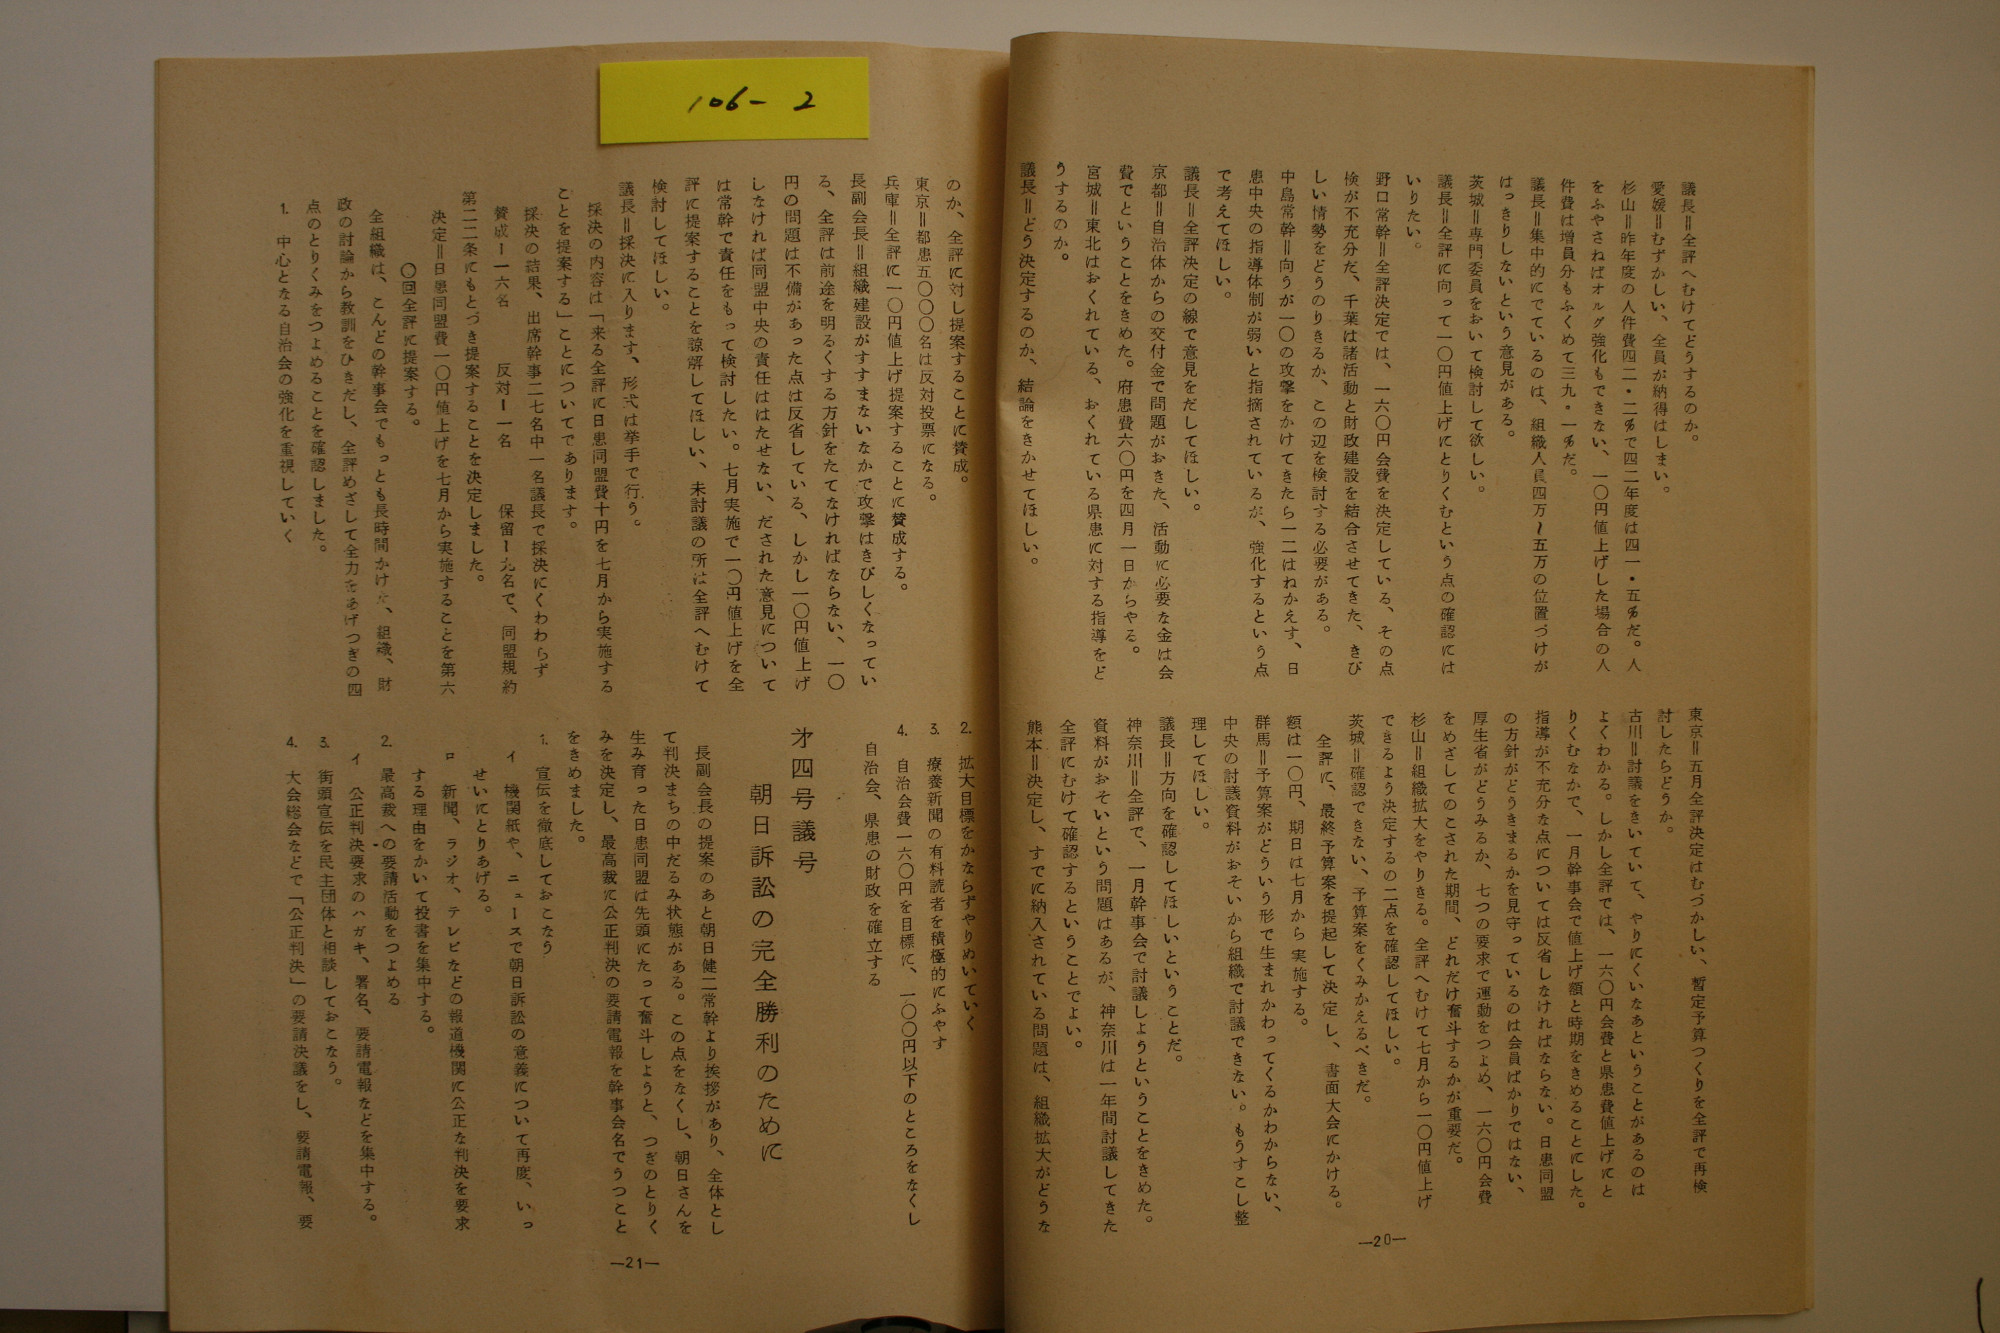 106-2
議長＝全評へむけてどうするのか。
愛媛＝むずかしい、全員が納得はしまい。
杉山＝昨年度の人件費四二・二％で四二年度は四一・五％だ。人
をふやさねばオルグ強化もできない、一〇円値上げした場合の人
件費は増員分もふくめて三九・一％だ。
議長＝集中的にでているのは、組織人員四万〜五万の位置づけが
はっきりしないという意見がある。
茨城＝専門委員をおいて検討して欲しい。
議長＝全評に向って一〇円値上げにとりくむという点の確認には
いりたい。
野口常幹＝全評決定では、一六〇円会費を決定している、その点
検が不充分だ、千葉は諸活動と財政建設を結合させてきた、きび
しい情勢をどうのりきるか、この辺を検討する必要がある。
中島常幹＝向うが一〇の攻撃をかけてきたら一二はねかえす、日
患中央の指導体制が弱いと指摘されているが、強化するという点
で考えてほしい。
議長＝全評決定の線で意見をだしてほしい。
京都＝自治体からの交付金で問題がおきた、活動に必要な金は会
費でということをきめた。府患費六〇円を四月一日からやる。
宮城＝東北はおくれている、おくれている県患に対する指導をど
うするのか。
議長＝どう決定するのか、結論をきかせてほしい。
東京＝五月全評決定はむづかしい、暫定予算つくりを全評で再検
討したらどうか。
古川＝討議をきいていて、やりにくいなあということがあるのは
よくわかる。しかし全評では、一六〇円会費と県患費値上げにと
りくむなかで、一月幹事会で値上げ額と時期をきめることにした。
指導が不充分な点については反省しなければならない。日患同盟
の方針がどうきまるかを見守っているのは会員ばかりではない、
厚生省がどうみるか、七つの要求で運動をつよめ、一六〇円会費
をめざしてのこされた期間、どれだけ奮斗するかが重要だ。
杉山＝組織拡大をやりきる。全評へむけて七月から一〇円値上げ
できるよう決定するの二点を確認してほしい。
茨城＝確認できない、予算案をくみかえるべきだ。
全評に、最終予算案を提起して決定し、書面大会にかける。
額は一〇円、期日は七月から実施する。
群馬＝予算案がどういう形で生まれかわってくるかわからない、
中央の討議資料がおそいから組織で討議できない。もうすこし整
理してほしい。
議長＝方向を確認してほしいということだ。
神奈川＝全評で、一月幹事会で討議しようということをきめた。
資料がおそいという問題はあるが、神奈川は一年間討議してきた
全評にむけて確認するということでよい。
熊本＝決定し、すでに納入されている問題は、組織拡大がどうな
—20—
のか、全評に対し提案することに賛成。
東京＝都患五〇〇〇名は反対投票になる。
兵庫＝全評に一〇円値上げ提案することに賛成する。
長副会長＝組織建設がすすまないなかで攻撃はきびしくなってい
る、全評は前途を明るくする方針をたてなければならない、一〇
円の問題は不備があった点は反省している、しかし一〇円値上げ
しなければ同盟中央の責任ははたせない、だされた意見について
は常幹で責任をもって検討したい。七月実施で一〇円値上げを全
評に提案することを諒解してほしい、未討議の所は全評へむけて
検討してほしい。
議長＝採決に入ります、形式は挙手で行う。
採決の内容は「来る全評に日患同盟費十円を七月から実施する
ことを提案する」ことについてであります。
採決の結果、出席幹事二七名中一名議長で採決にくわわらず
賛成ー一六名　反対ー一名　保留ー九名で、同盟規約
第二二条にもとづき提案することを決定しました。
決定＝日患同盟費一〇円値上げを七月から実施することを第六
〇回全評に提案する。
全組織は、こんどの幹事会でもっとも長時間かけた、組織、財
政の討論から教訓をひきだし、全評めざして全力をあげつぎの四
点のとりくみをつよめることを確認しました。
1. 中心となる自治会の強化を重視していく
2. 拡大目標をかならずやりぬいていく
3. 療養新聞の有料読者を積極的にふやす
4. 自治会費一六〇円を目標に、一〇〇円以下のところをなくし
自治会、県患の財政を確立する
才四号議号
朝日訴訟の完全勝利のために
長副会長の提案のあと朝日健二常幹より挨拶があり、全体とし
て判決まちの中だるみ状態がある。この点をなくし、朝日さんを
生み育った日患同盟は先頭にたって奮斗しようと、つぎのとりく
みを決定し、最高裁に公正判決の要請電報を幹事会名でうつこと
をきめました。
1. 宣伝を徹底しておこなう
イ 機関紙や、ニュースで朝日訴訟の意義について再度、いっ
せいにとりあげる。
ロ 新聞、ラジオ、テレビなどの報道機関に公正な判決を要求
する理由をかいて投書を集中する。
2. 最高裁への要請活動をつよめる
イ 公正判決要求のハガキ、署名、要請電報などを集中する。
3. 街頭宣伝を民主団体と相談しておこなう。
4. 大会総会などで「公正判決」の要請決議をし、要請電報、要
—21—